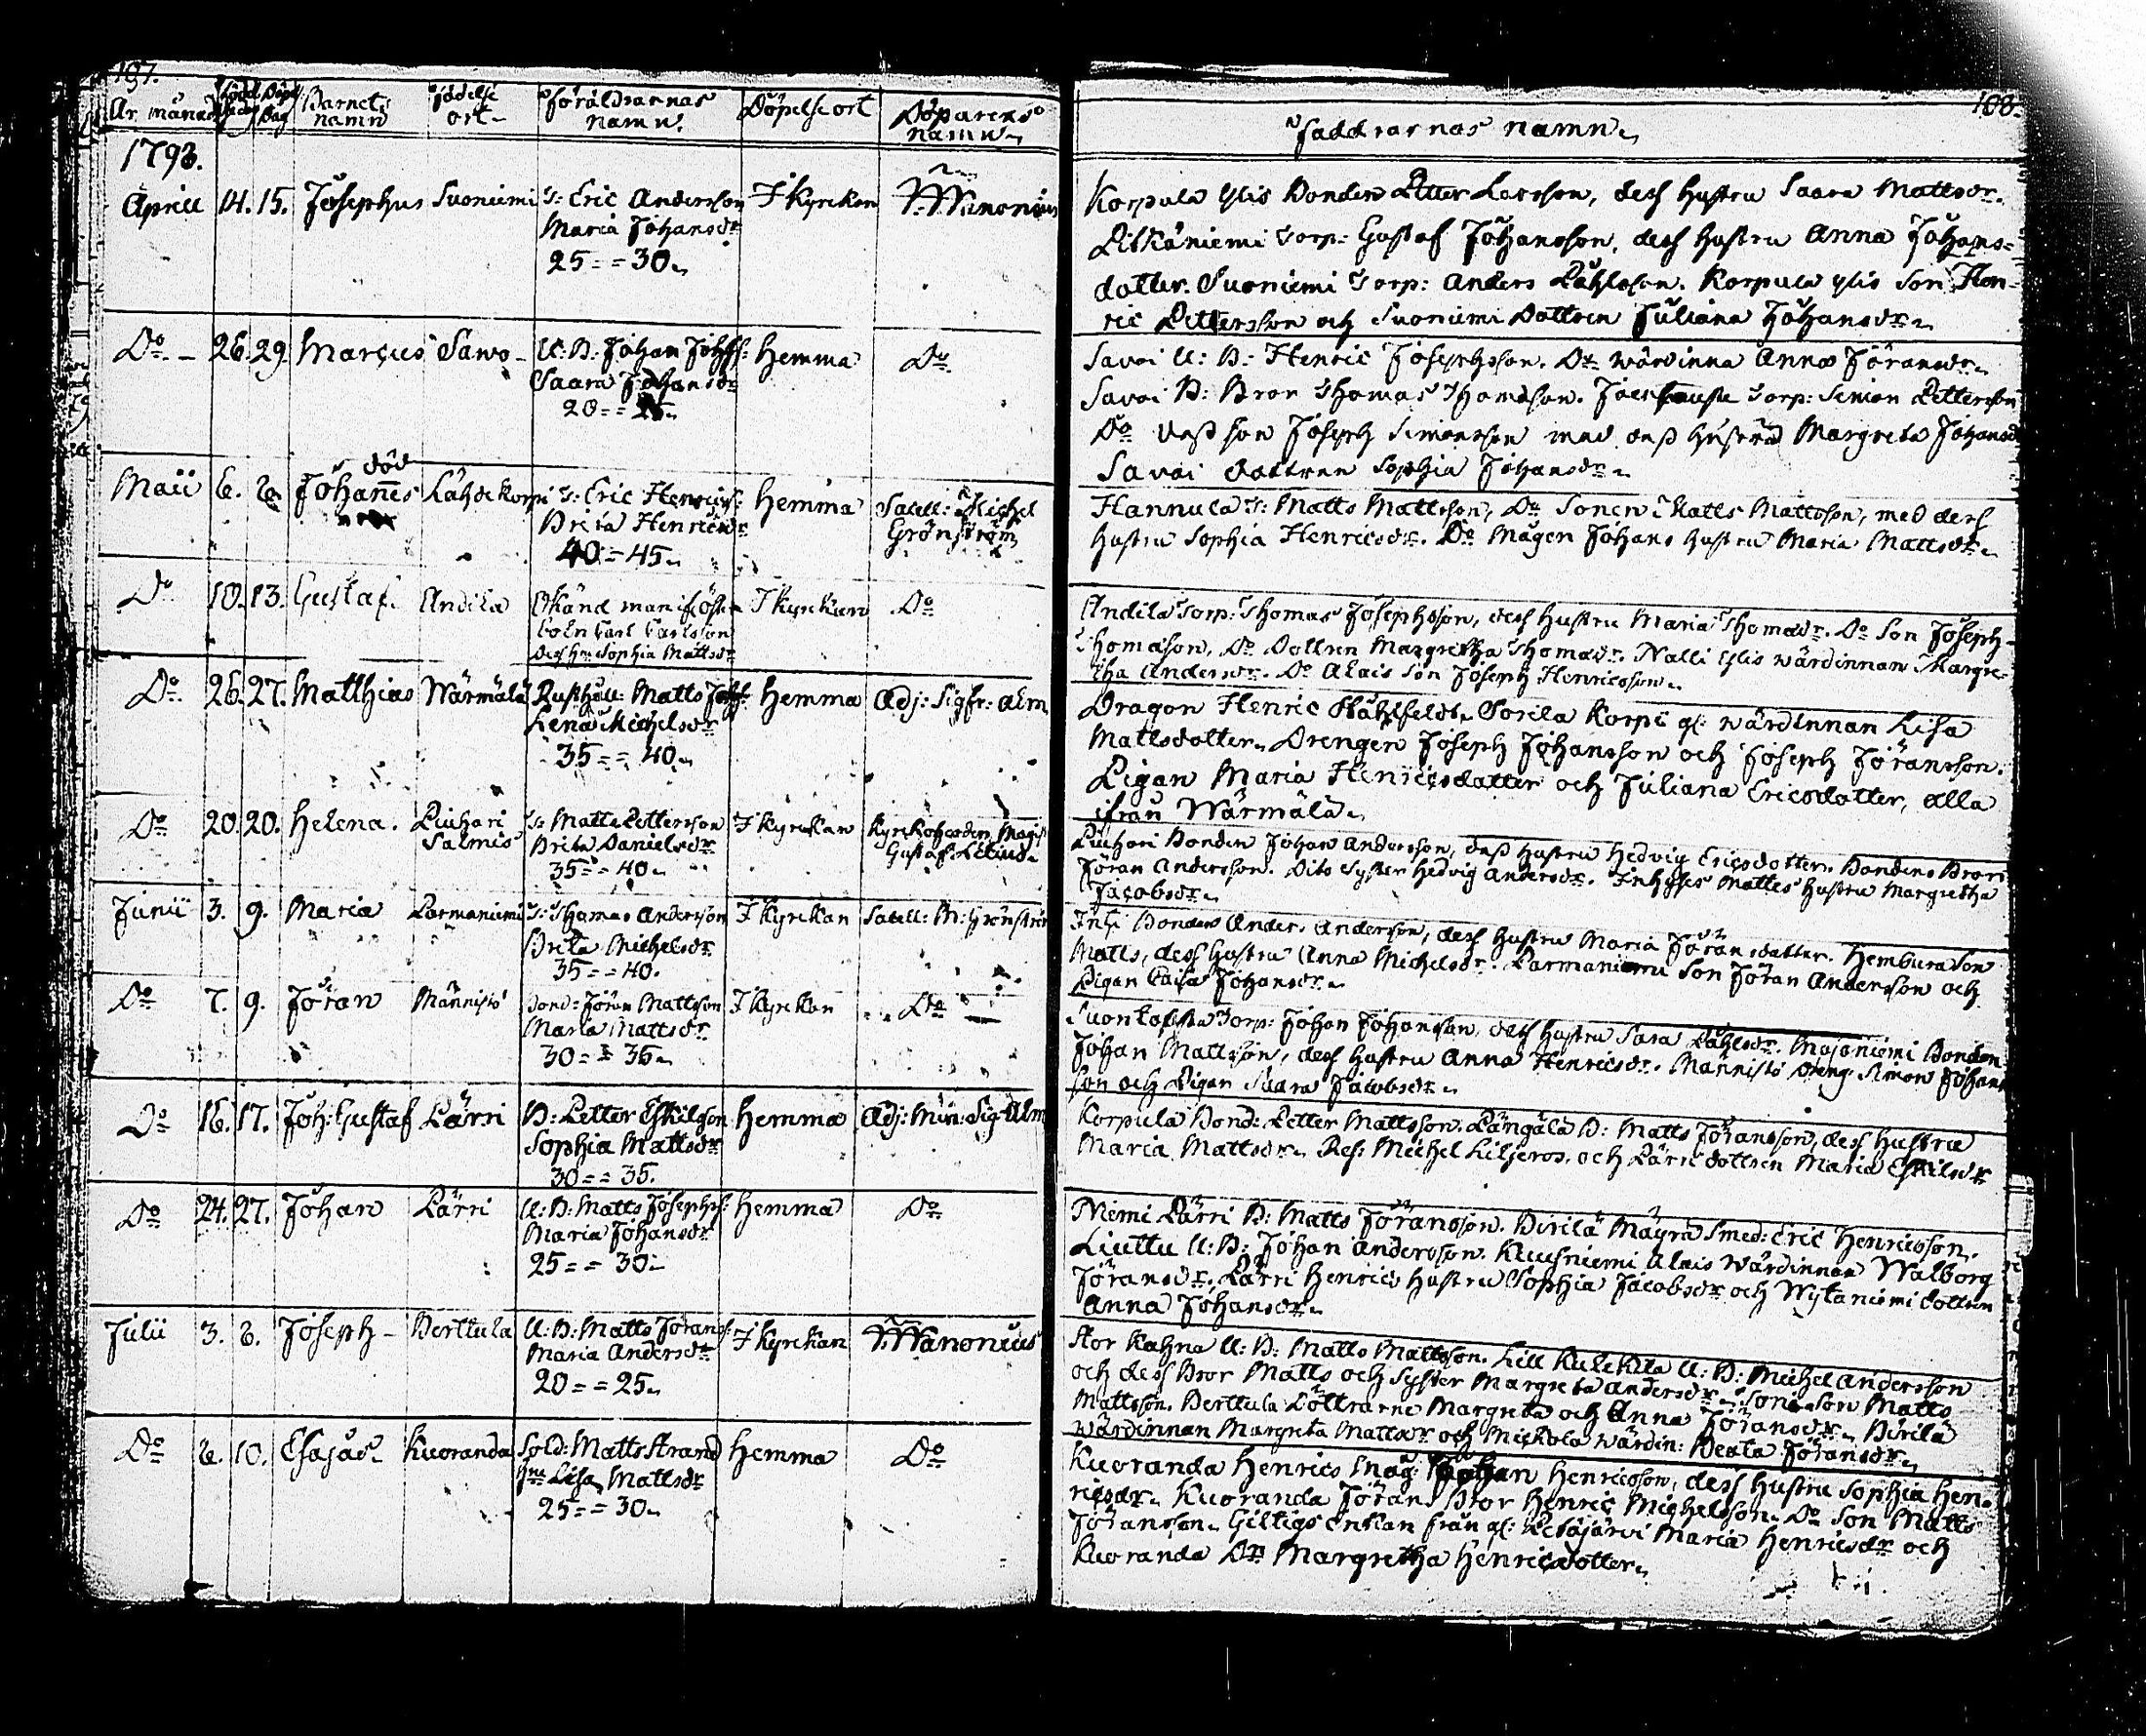 107.
År månad Födelse dag Döpelse Dag Barnets namn Födelse ort Föräldrarnas namn. Döpelse ort Döparens namn
1793.
April 14. 15. Josephus Suoniemi T: Eric Andersson I Kyrkan Wanonius
Maria Johansdr
25 = = 30
Do 26. 29. Marcus Sawo U: B: Johan Johss: Hemma Do
Saara Johansdr
20 = = 25
död
Maii 6. 8. Johanes Lähdekorpi T: Eric Henricss: Hemma Satell: Michel
Brita Henricsdr Grönström
40 = 45
Do 10. 13. Gustaf. Andila Okänd man I Kyrkan Do
Carl Carlsson
Dess Hu Sophia Mattsdr
Do 26. 27. Matthias Wärmälä Rusthåll: Matts Johss: Hemma Adj: Sigfr: Alm
Lena Michelsdr
35 = = 40
Do 20. 20. Helena. Liuhari T: Matts Pettersson I Kyrkan Kyrkoherden Magist
Salmis Brita Danielsdr Gustaf Lilius
35 = = 40
Junii 3. 9. Maria Parmaniemi T: Thomas Andersson I Kyrkan Satell: M: Grönström
Brita Michelsdr
35 = = 40.
Do 7. 9. Jöran Männistö Bond: Jöran Mattsson I Kyrkan Do
Maria Mattsdr
30 = = 35
Do 16. 17. Joh: Gustaf Pärri B: Petter Eskilsson Hemma Adj: Min: Sig Alm
Sophia Mattsdr
30 = = 35.
Do 24. 27. Johan Pärri U: B: Matts Josephss: Hemma Do
Maria Johansdr
25 = = 30
Julii 3. 8. Joseph Berttula U: B: Matts Jöranss: I Kyrkan Wanonius
Maria Andersdr
20 = = 25
Do 6. 10. Esajas Kuoranda Sold: Matts Strand Hemma Do
Hu Lisa Mattsdr
25 = = 30
108.
Faddrarnas namn
Korpula Ylis Bonden Petter Larsson, dess Hustru Saara Mattsdr.
Pitkäniemi Torp: Gustaf Johansson, dess Hustru Anna Johans=
dotter. Suoniemi Torp: Anders Påhlsson. Korpula Ylis Son Hen=
ric Pettersson och Suoniemi Dottren Juliana Johansdr
Savoi U: B: Henric Josephsson. Do Wärdinna Anna Jöransdr
Savoi B: Bror Thomas Thomasson. Torp: Simon Pettersson
Do dess son Joseph Simonsson med dess Hustru Margreta Johansdr
Savoi dottren Sophia Johansdr
Hannula T: Matts Mattsson, Do Sonen Matts Mattsson, med dess
Hustru Sophia Henricsdr. Do Mågen Johans Hustru Maria Mattsdr
Andila Torp: Thomas Josephsson, dess Hustru Maria Thomasdr. Do Son Joseph
Thomasson. Do Dottren Margretha Thomasdr. Nalli Ylis wärdinnan Margre=
tha Andersdr. Do Alais Son Joseph Henricsson
Dragon Henric Ståhlfeldt. Sorila Korpi gl: wärdinnan Lisa
Mattsdotter. Drengen Joseph Johansson och Joseph Jöransson.
Pigan Maria Henricsdotter och Juliana Ericsdotter, alla
ifrån Wärmälä
Liuhari Bonden Johan Andersson, dess Hustru Hedvig Ericsdotter. Bondens Broren
Jöran Andersson. Dito Syster Hedvig Andersdr. Inhyses Mattes Hustru Margretha
Jacobsdr
Bonden Ander. Andersson, dess Hustru Maria Jöransdotter. Hembura Son
Matts, dess Hustru Anna Michelsdr. Parmaniemi Son Jöran Andersson och
Pigan Caisa Johansdr
Torp: Johan Johansson, dess Hustru Sara Påhlsdr. Majaniemi Bonden
Johan Mattsson, dess Hustru Anna Henricsdr. Männistö Dreng Simon Johans
son och Pigan Saara Jacobsdr
Korpula Bond: Petter Mattsson. Pängälä B: Matts Jöransson, dess Hustru
Maria Mattsdr. Res: Michel Liljeros, och Pärri dottren Maria Eskilsdr
Niemi Pärri B: Matts Jöransson. Birilä Mäyrä Smed: Eric Henricsson.
Liuttu U: B: Johan Andersson. Kuusniemi Alais Wärdinnan Walborg
Jöransdr. Pärri Henrics Hustru Sophia Jacobsdr och Wytaniemi dottren
Anna Johansdr
Stor Kahna U: B: Matts Mattsson. Lill Kulkkila U: B: Michel Andersson
och dess Bror Matts och Syster Margreta Andersdr Sone Son Matts
Mattsson. Berttula Döttrarne Margreta och Anna Jöransdr. Birilä
Wärdinnan Margreta Mattsdr och Mickola Wärdin: Beata Jöransdr
Kuoranda Henrics Måg: Johan Henricsson, dess Hustru Sophia Hen=
ricsdr. Kuoranda Jörans Bror Henric Michelsson. Do Son Matts
Jöransson. Giltigs Enkan från gl: Petäjärvi Maria Henricsdr och
Kuoranda Dr Margretha Henricsdotter